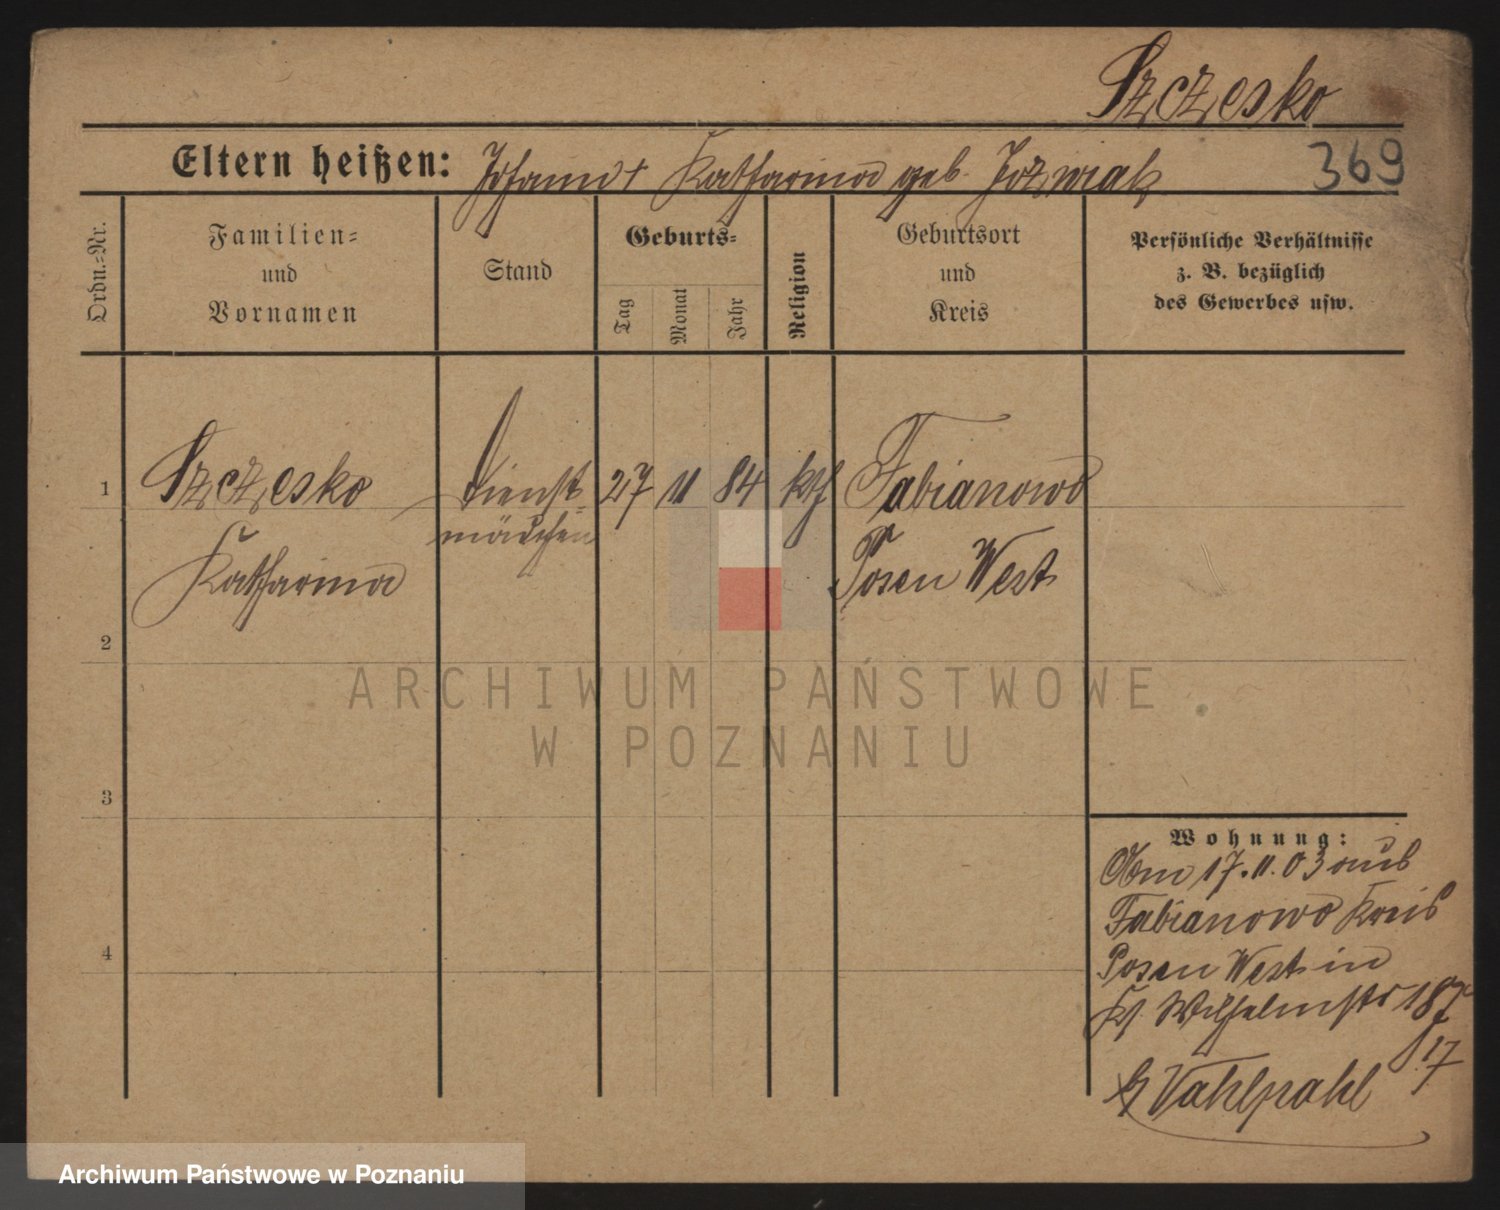 Szczesko
Eltern heißen: Johann + Katharina geb. Jozwiak
369
Ordn.-Nr.
Familien-
und
Vornamen
Stand
Geburts-
Tag
Monat
Jahr
Religion
Geburtsort
und
Kreis
Persönliche Verhältnisse
z. B. bezüglich
des Gewerbes usw.
1
Szczesko
Katharina
Dienst-
mädchen
27
11
84
kth
Fabianowo
Posen West
2
3
4
Wohnung:
Am 17.11.03 aus
Fabianowo Kreis
Posen West in
Kl Wilhelmstr 18
17
b Vahlpahl
ARCHIWUM PAŃSTWOWE
W POZNANIU
Archiwum Państwowe w Poznaniu